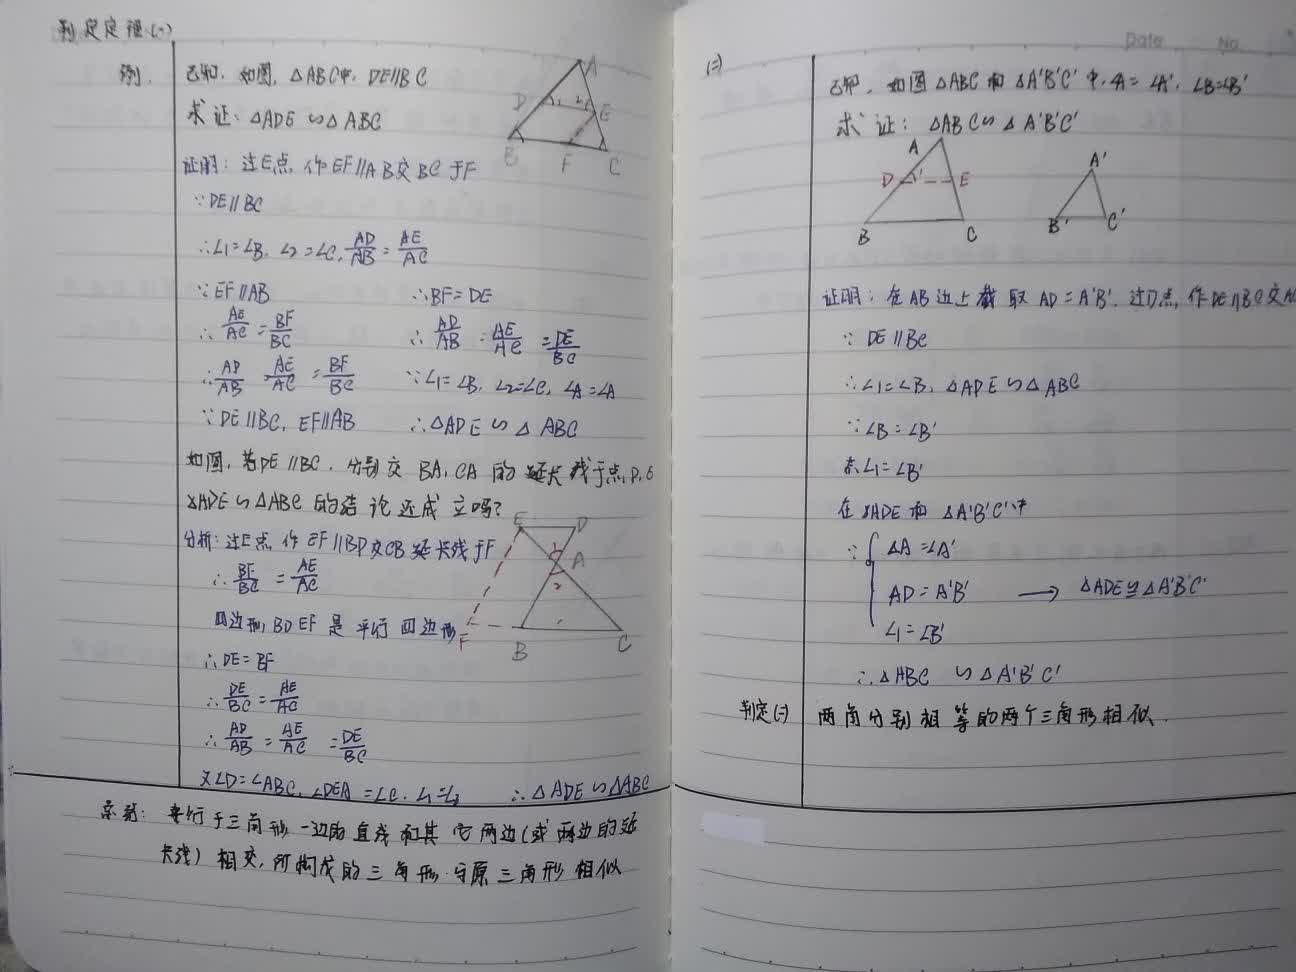 判定定理(一)
例. 已知. 如图, △ABC中, DE∥BC
求证: △ADE∽△ABC
A
D 1 2 E
B F C
证明: 过E点, 作EF∥AB交BC于F
∵DE∥BC
∴∠1=∠B, ∠2=∠C, AD/AB=AE/AC
∵EF∥AB ∴BF=DE
∴AE/AC=BF/BC ∴AD/AB=AE/AC=DE/BC
∴AD/AB=AE/AC=BF/BC ∵∠1=∠B, ∠2=∠C, ∠A=∠A
∵DE∥BC, EF∥AB ∴△ADE∽△ABC
如图, 若DE∥BC, 分别交BA, CA的延长线于点, D, E
△ADE∽△ABC的结论还成立吗?
E D
1
A
2
F B C
分析: 过E点, 作EF∥BD交CB延长线于F
∴BF/BC=AE/AC
四边形BDEF是平行四边形
∴DE=BF
∴DE/BC=AE/AC
∴AD/AB=AE/AC=DE/BC
又∠D=∠ABC, ∠DEA=∠C, ∠1=∠2 ∴△ADE∽△ABC
平行于三角形一边的直线和其它两边(或两边的延
长线)相交, 所构成的三角形与原三角形相似
Date No
(二)
已知, 如图△ABC和△A'B'C'中, ∠A=∠A', ∠B=∠B'
求证: △ABC∽△A'B'C'
A A'
D 1 E
B C B' C'
证明: 在AB边上截取AD=A'B', 过D点, 作DE∥BC交A
∵DE∥BC
∴∠1=∠B, △ADE∽△ABC
∵∠B=∠B'
∴∠1=∠B'
在△ADE和△A'B'C'中
∵{△A=∠A'
AD=A'B' → △ADE≌△A'B'C'
∠1=∠B'
∴△ABC∽△A'B'C'
判定(二) 两角分别相等的两个三角形相似.